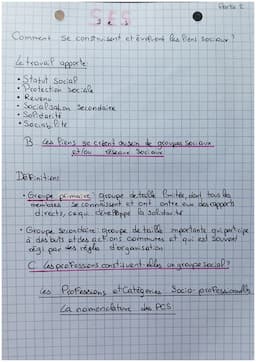 Partie 2
SES
Comment se construisent et évoluent les liens sociaux ?
Le travail apporte :
• Statut social
• Protection sociale
• Revenu
• Socialisation secondaire
• Solidarité
• Sociabilité
B. Les liens se créent au sein de groupes sociaux
et/ou réseaux sociaux
Définitions
• Groupe primaire : groupe de taille limitée, dont tous les
membres se connaissent et ont entre eux des rapports
directs, ce qui développe la solidarité
• Groupe secondaire : groupe de taille importante qui participe
à des buts et des actions communes et qui est souvent
régi par des règles d'organisation
C. Les professions constituent elles un groupe social ?
Les Professions et Catégories Socio-professionnelles
La nomenclature des PCS